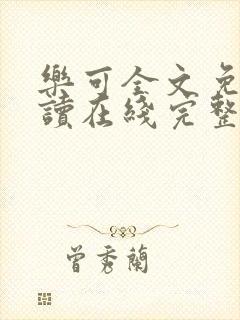 樂可全文免
讀在綫完整
曾秀蘭